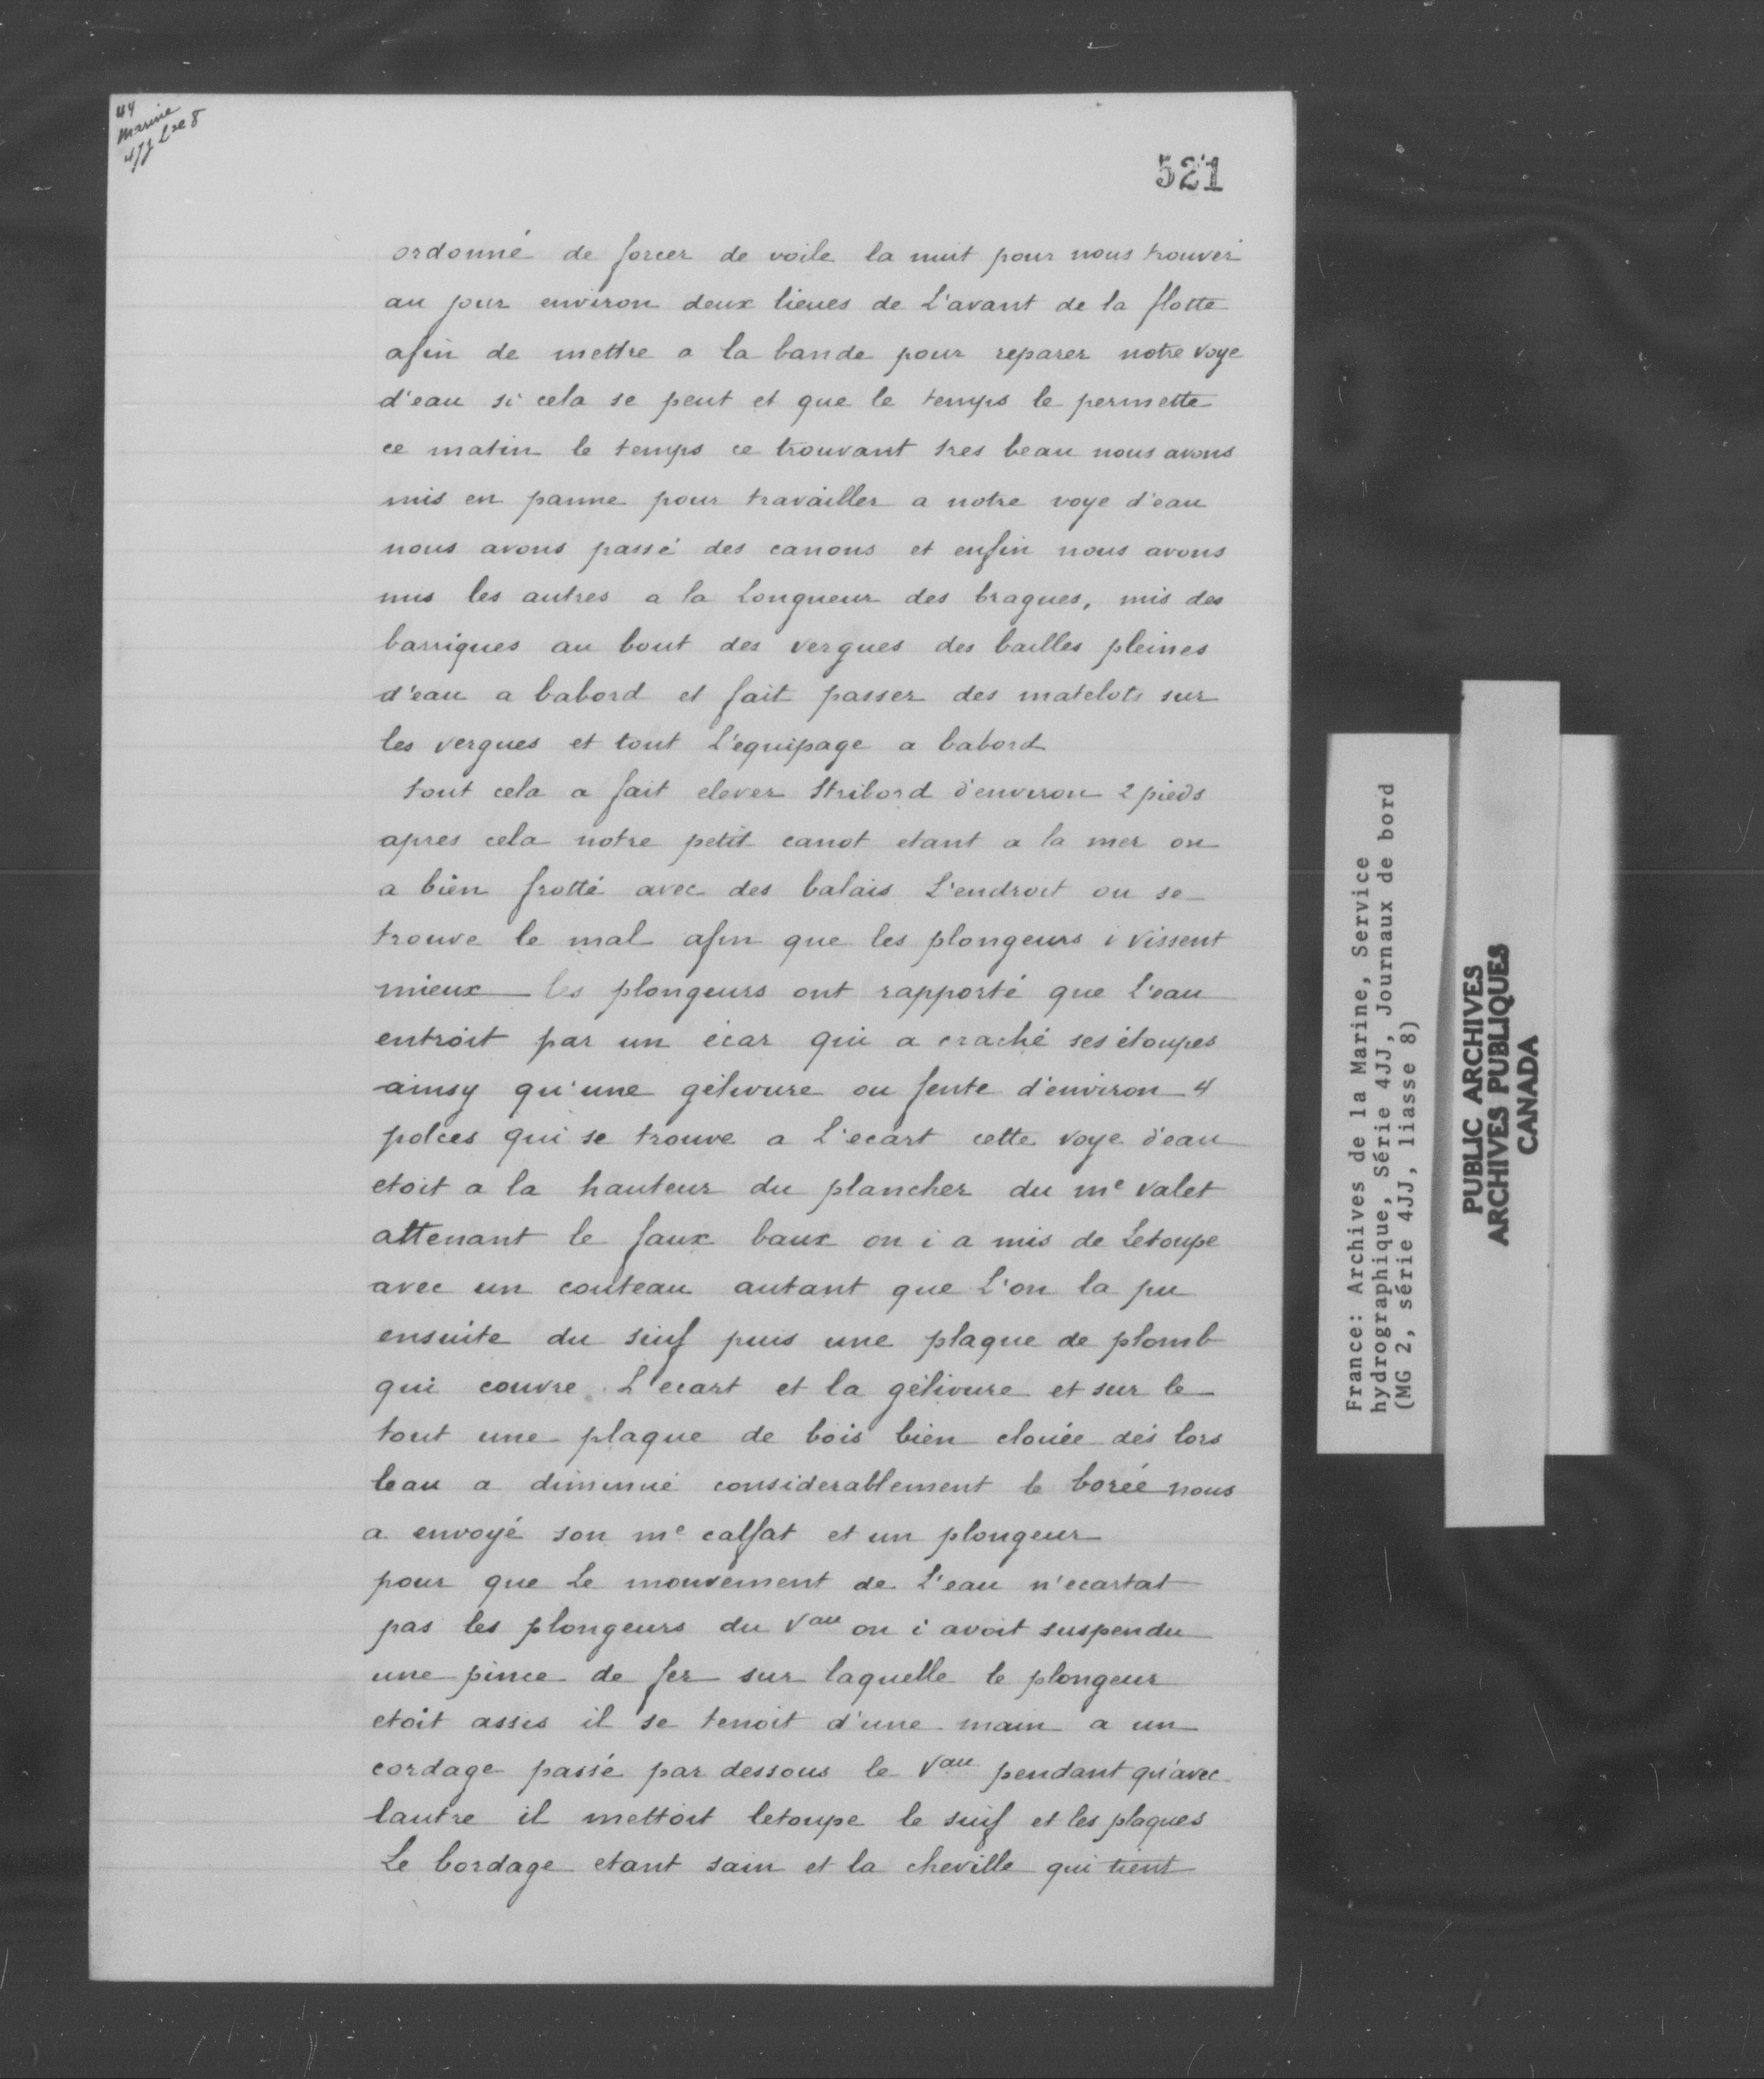 44
Marine
4JJ Lse 8
521
ordonné de forcer de voile la nuit pour nous trouver
au jour environ deux lieues de L'avant de la flotte
afin de mettre a la bande pour reparer notre voye
d'eau si cela se peut et que le temps le permette
ce matin le temps ce trouvant tres beau nous avons
mis en panne pour travailler a notre voye d'eau
nous avons passé des canons et enfin nous avons
mis les autres a la Longueur des bragues, mis des
barriques au bout des vergues des bailles pleines
d'eau a babord et fait passer des matelots sur
les vergues et tout L'equipage a babord
tout cela a fait elever Stribord d'environ 2 pieds
apres cela notre petit canot etant a la mer on
a bien frotté avec des balais L'endroit ou se
trouve le mal afin que les plongeurs i vissent
mieux les plongeurs ont rapporté que L'eau
entroit par un écar qui a craché ses étoupes
ainsy qu'une gelivure ou fente d'environ 4
polces qui se trouve a L'ecart cette voye d'eau
etoit a la hauteur du plancher du me valet
attenant le faux baux on i a mis de Letoupe
avec un couteau autant que L'on la pu
ensuite du suif puis une plaque de plomb
qui couvre L'ecart et la gélivure et sur le
tout une plaque de bois bien clouée dés lors
leau a diminué considerablement le borée nous
a envoyé son me calfat et un plongeur
pour que Le mouvement de L'eau n'ecartat
pas les plongeurs du Vau on i avoit suspendu
une pince de fer sur laquelle le plongeur
etoit assis il se tenoit d'une main a un
cordage passé par dessous le Vau pendant qu'avec
lautre il mettoit letoupe le suif et les plaques
Le bordage etant sain et la cheville qui tient
France: Archives de la Marine, Service
hydrographique, Série 4JJ, Journaux de bord
(MG 2, série 4JJ, liasse 8)
PUBLIC ARCHIVES
ARCHIVES PUBLIQUES
CANADA